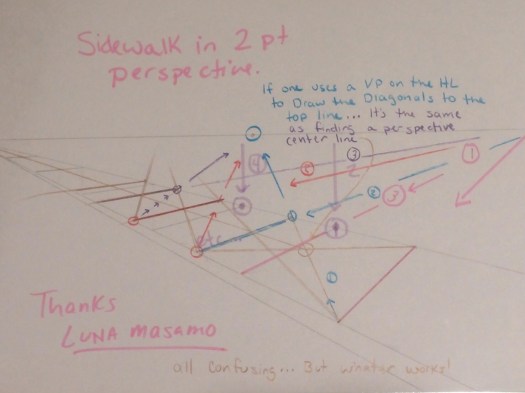 Sidewalk in 2 pt
perspective.
If one uses a VP on the HL
to Draw the Diagonals to the
top line... It's the same
as finding a perspective
center line
Thanks
LUNA MASAMO
all confusing... But whatever works!